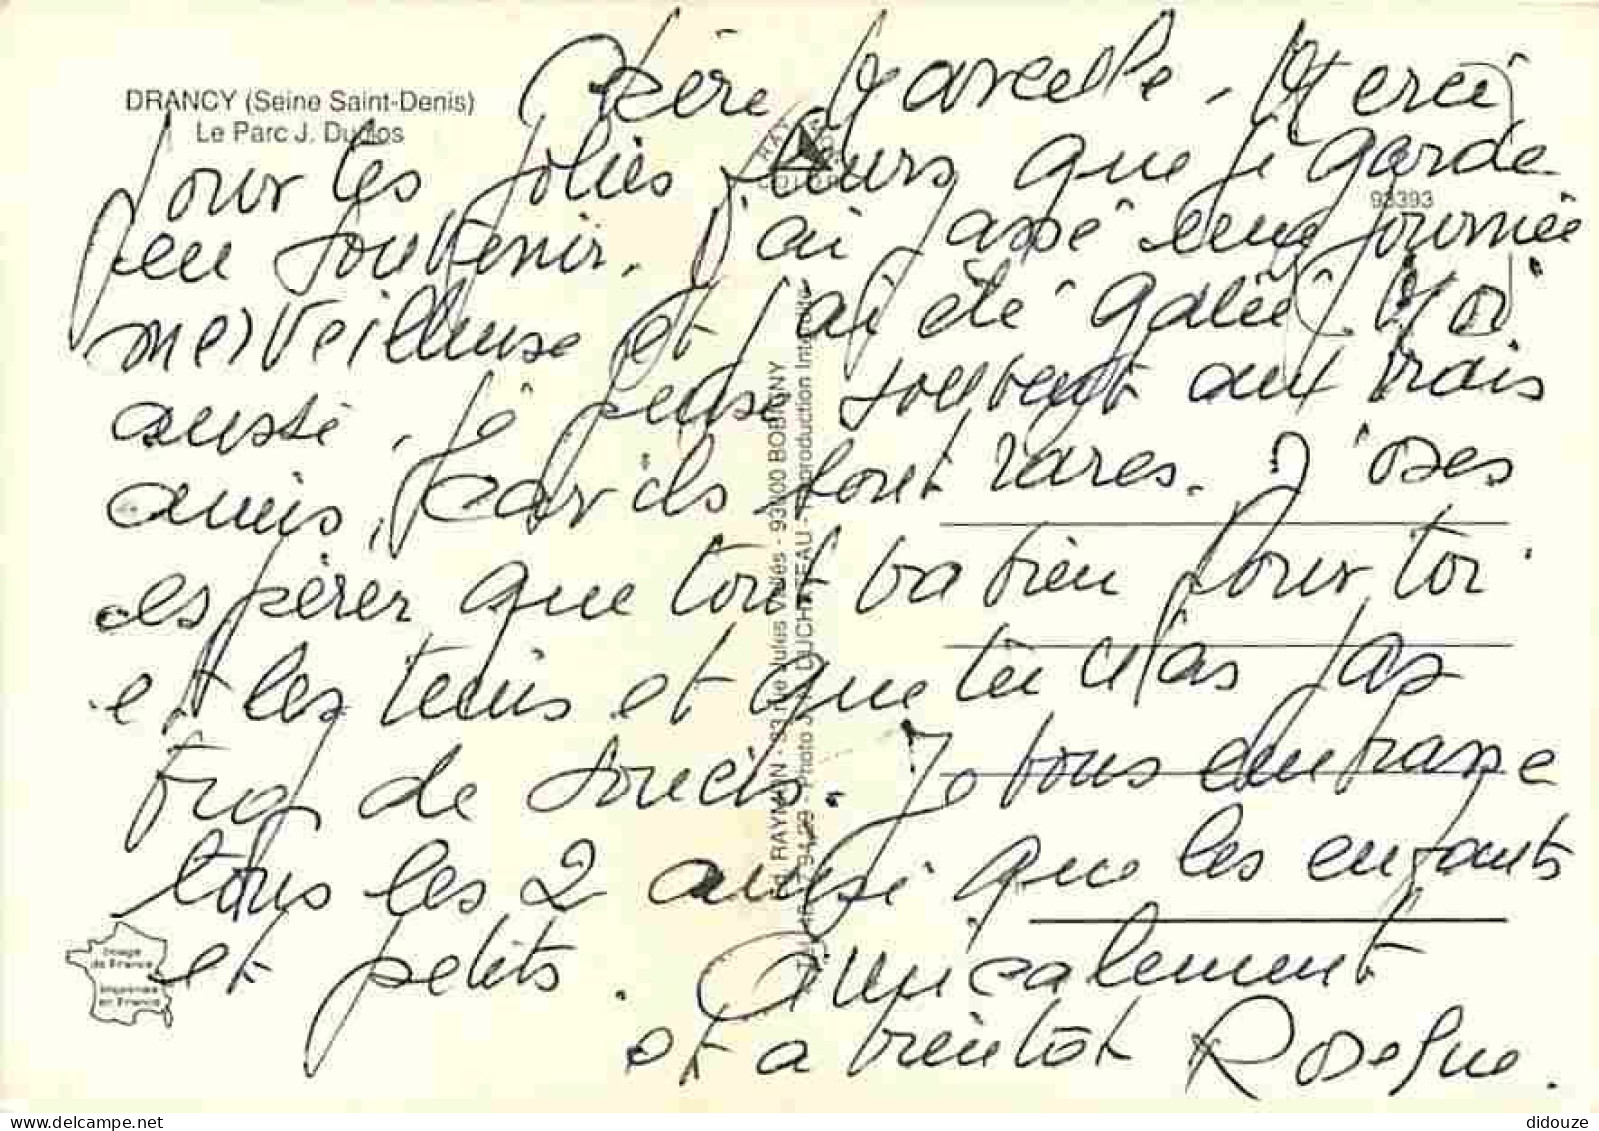 DRANCY (Seine Saint-Denis)
Le Parc J. Duclos
93393
Chère Marcelle. Merci
pour les jolies fleurs que je garde
en souvenir. J'ai passé une journée
merveilleuse et j'ai été gatée. Moi
aussi, je pense souvent aux vrais
amis, car ils sont rares. J'oses
espérer que tout va bien pour toi
et les tiens et que tu n'as pas
trop de soucis. Je vous embrasse
tous les 2 ainsi que les enfants
et petits. Amicalement
et a bientôt
RAYMON - 93 rue Jules Vallés - 93000 BOBIGNY
Photo J. DUCHATEAU - Reproduction Interdite
Image
de France
Imprimée
en France
didouze